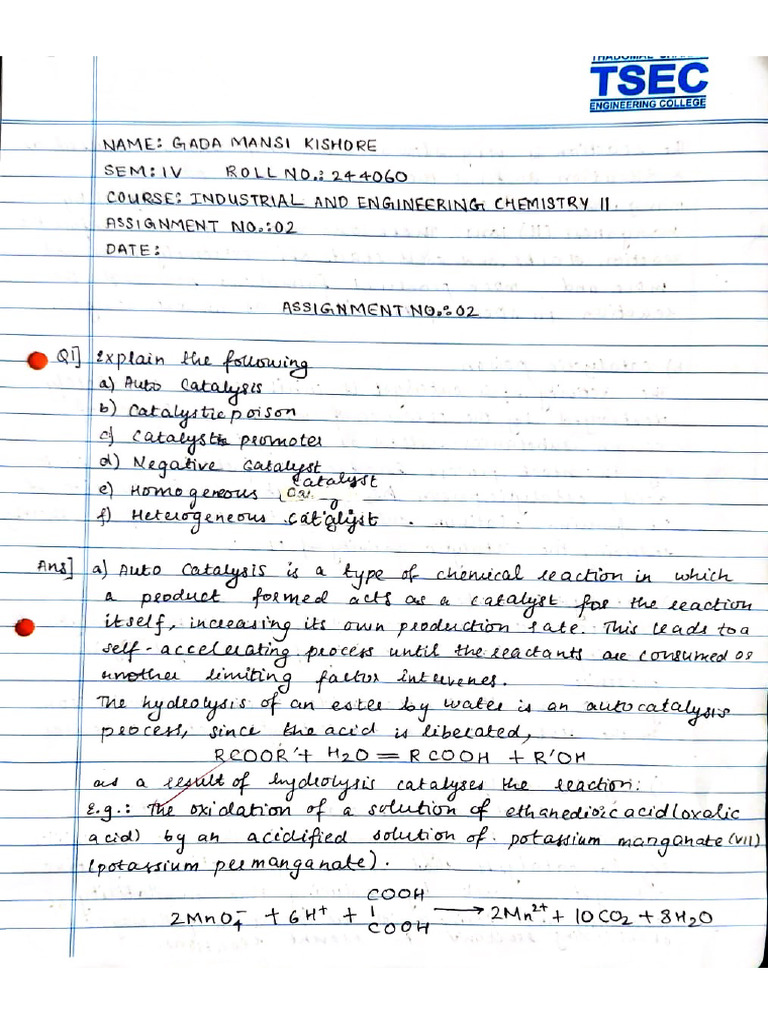 TSEC
ENGINEERING COLLEGE
NAME: GADA MANSI KISHORE
SEM: IV ROLL NO.: 244060
COURSE: INDUSTRIAL AND ENGINEERING CHEMISTRY II
ASSIGNMENT NO.: 02
DATE:
ASSIGNMENT NO.: 02
Q1] Explain the following
a) Auto Catalysis
b) Catalystic poison
c) Catalyst promoter
d) Negative Catalyst
e) Homogeneous Catalyst
f) Heterogeneous catalyst.
Ans] a) Auto Catalysis is a type of chemical reaction in which
a product formed acts as a catalyst for the reaction
itself, increasing its own production rate. This leads to a
self-accelerating process until the reactants are consumed or
another limiting factor intervenes.
The hydrolysis of an ester by water is an autocatalysis
process, since the acid is liberated,
RCOOR' + H2O = RCOOH + R'OH
as a result of hydrolysis catalyses the reaction:
E.g.: The oxidation of a solution of ethanedioic acid (oxalic
acid) by an acidified solution of potassium manganate (VII)
(potassium permanganate).
COOH
2MnO4^- + 6H^+ + | → 2Mn^2+ + 10CO2 + 8H2O
COOH